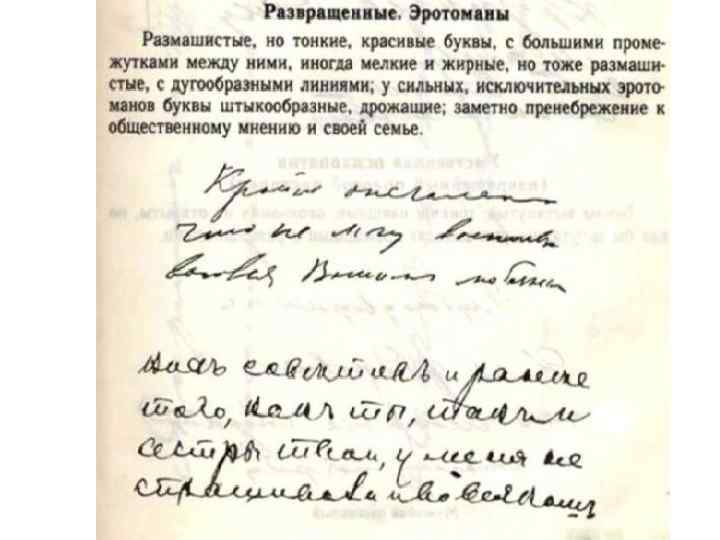 Развращенные. Эротоманы
Размашистые, но тонкие, красивые буквы, с большими проме-
жутками между ними, иногда мелкие и жирные, но тоже размаши-
стые, с дугообразными линиями; у сильных, исключительных эрото-
манов буквы штыкообразные, дрожащие; заметно пренебрежение к
общественному мнению и своей семье.
Крайне
что не могу
Вашим
какъ совѣтикъ и ранѣе
того, какъ ты, такъ и
сестры твои, у меня не